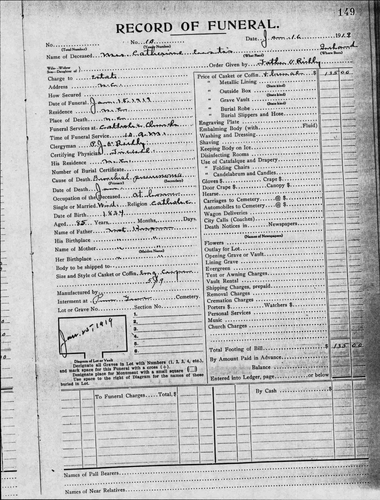 149
RECORD OF FUNERAL.
No. 10 Date, Jan 16 191
(Total Number) (Yearly Number)
Name of Deceased, Mrs. Catherine
Order Given by, Father O'Reilly
Charge to estate
Address
How Secured
Date of Funeral Jan. 15 1919
Place of Death,
Funeral Services at Catholic Church
Time of Service,
Clergyman P. J. O'Reilly
Certifying Physician,
His Residence
Number of Burial Certificate
Cause of Death Bronchial pneumonia
Date of Death Jan
Occupation of the Deceased at home
Single or Married Religion Catholic
Date of Birth 1834
Aged 85 Years, Months, Days
Name of Father, not known
His Birthplace
Name of Mother
Her Birthplace
Body to be shipped to
Size and Style of Casket or Coffin,
Manufactured by
Interment at Cemetery
Lot or Grave No. Section No.
1
2
3
4
5
6
7
8
Jan 1919
Diagram of Lot or Vault
Designate all Graves in Lot with Numbers (1, 2, 3, 4, etc.), and mark space for this Funeral with a cross
Designate place for Monument with a small square
Use space to the right of Diagram for names of those buried in Lot.
Price of Casket or Coffin, 135 00
" Metallic Lining
" Outside Box
" Grave Vault
" Burial Robe
" Burial Slippers and Hose
Engraving Plate
Embalming Body (with
Washing and Dressing
Shaving
Keeping Body on Ice
Disinfecting Rooms
Use of Catafalque and Drapery
" Folding Chairs
" Candelabrum and Candles
Gloves $ Crape $
Door Crape $ Canopy $
Hearse
Carriages to Cemetery @ $
Automobiles to Cemetery @ $
Wagon Deliveries
City Calls (Coaches)
Death Notices in Newspapers
(Names of Newspapers)
Flowers
Outlay for Lot
Opening Grave or Vault
Lining Grave
Evergreen
Tent or Awning Charges
Vault Rental
Shipping Charges, prepaid
Removal Charges
Cremation Charges
Porters $ Watchers $
Personal Services
Music
Church Charges
Total Footing of Bill 135 00
By Amount Paid in Advance
Balance
Entered into Ledger, page or below.
To Funeral Charges, Total $
By Cash $
Names of Pall Bearers
Names of Near Relatives